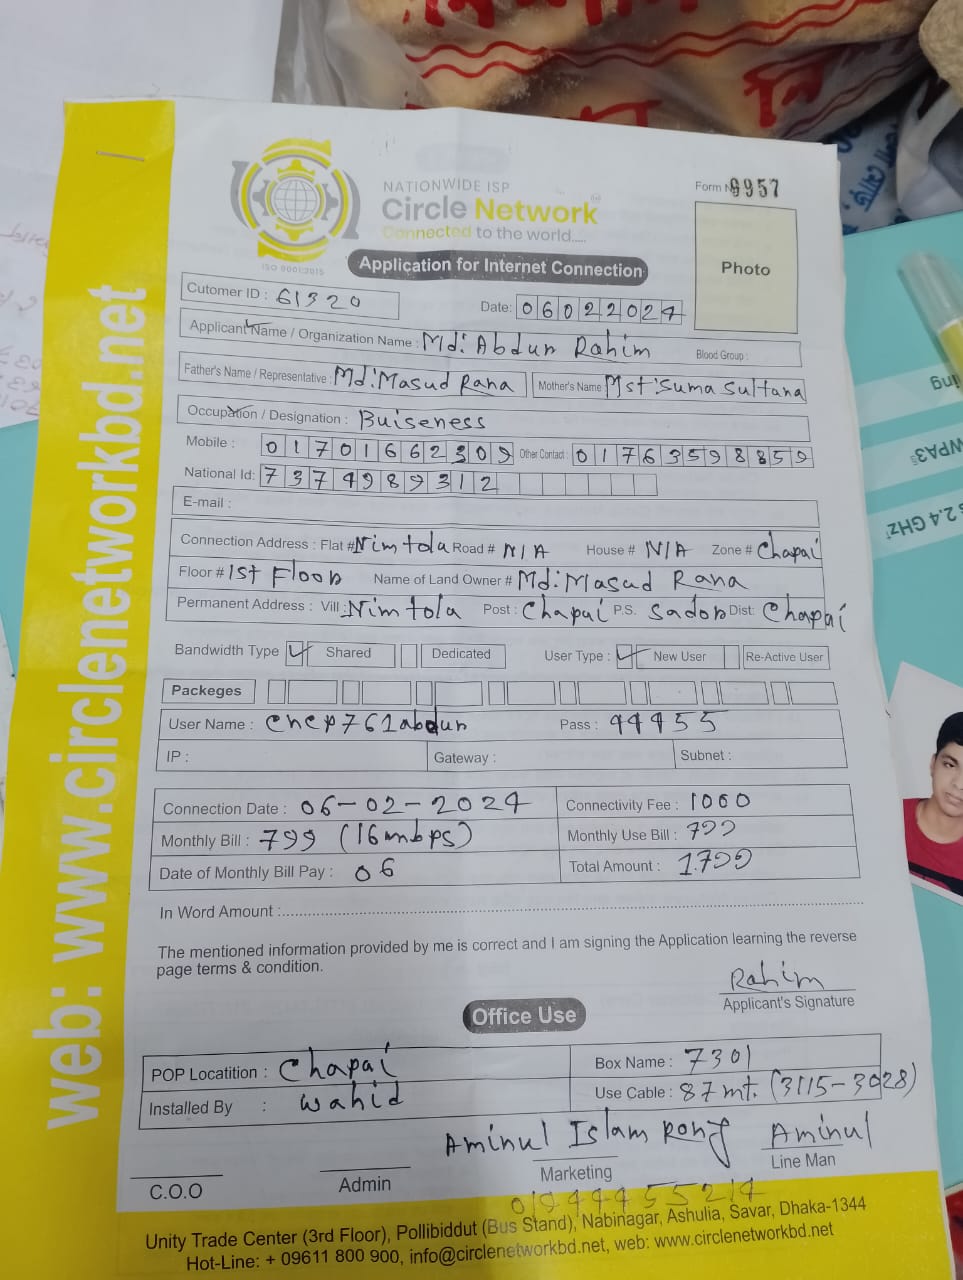 NATIONWIDE ISP
Circle Network
Connected to the world.....
ISO 9001:2015
Form No 9957
Photo
Application for Internet Connection
Cutomer ID : 61320
Date: 06022024
Applicant Name / Organization Name : Md: Abdur Rahim Blood Group :
Father's Name / Representative : Md: Masud Rana Mother's Name Mst: Suma Sultana
Occupation / Designation : Buiseness
Mobile : 01701662309 Other Contact : 01763598859
National Id: 7374989312
E-mail :
Connection Address : Flat # Nimtola Road # N/A House # N/A Zone # Chapai
Floor # 1st Floor Name of Land Owner # Md: Masud Rana
Permanent Address : Vill : Nimtola Post : Chapai P.S. Sador Dist: Chapai
Bandwidth Type Shared Dedicated User Type : New User Re-Active User
Packeges
User Name : chcp761abdur Pass : 44455
IP : Gateway : Subnet :
Connection Date : 06-02-2024 Connectivity Fee : 1000
Monthly Bill : 799 (16mbps) Monthly Use Bill : 799
Date of Monthly Bill Pay : 06 Total Amount : 1799
In Word Amount :
The mentioned information provided by me is correct and I am signing the Application learning the reverse
page terms & condition.
Rahim
Applicant's Signature
Office Use
POP Locatition : Chapai Box Name : 7301
Installed By : Wahid Use Cable : 87 mt. (3115-3028)
Aminul Islam Aminul
C.O.O Admin Marketing Line Man
Unity Trade Center (3rd Floor), Pollibiddut (Bus Stand), Nabinagar, Ashulia, Savar, Dhaka-1344
Hot-Line: + 09611 800 900, info@circlenetworkbd.net, web: www.circlenetworkbd.net
web: www.circlenetworkbd.net
WPA3
2.4 GHz